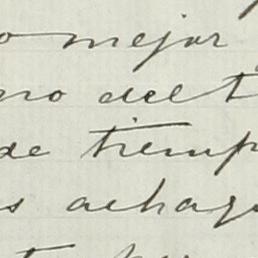 o mejor
no del t
de tiemp
s achaq